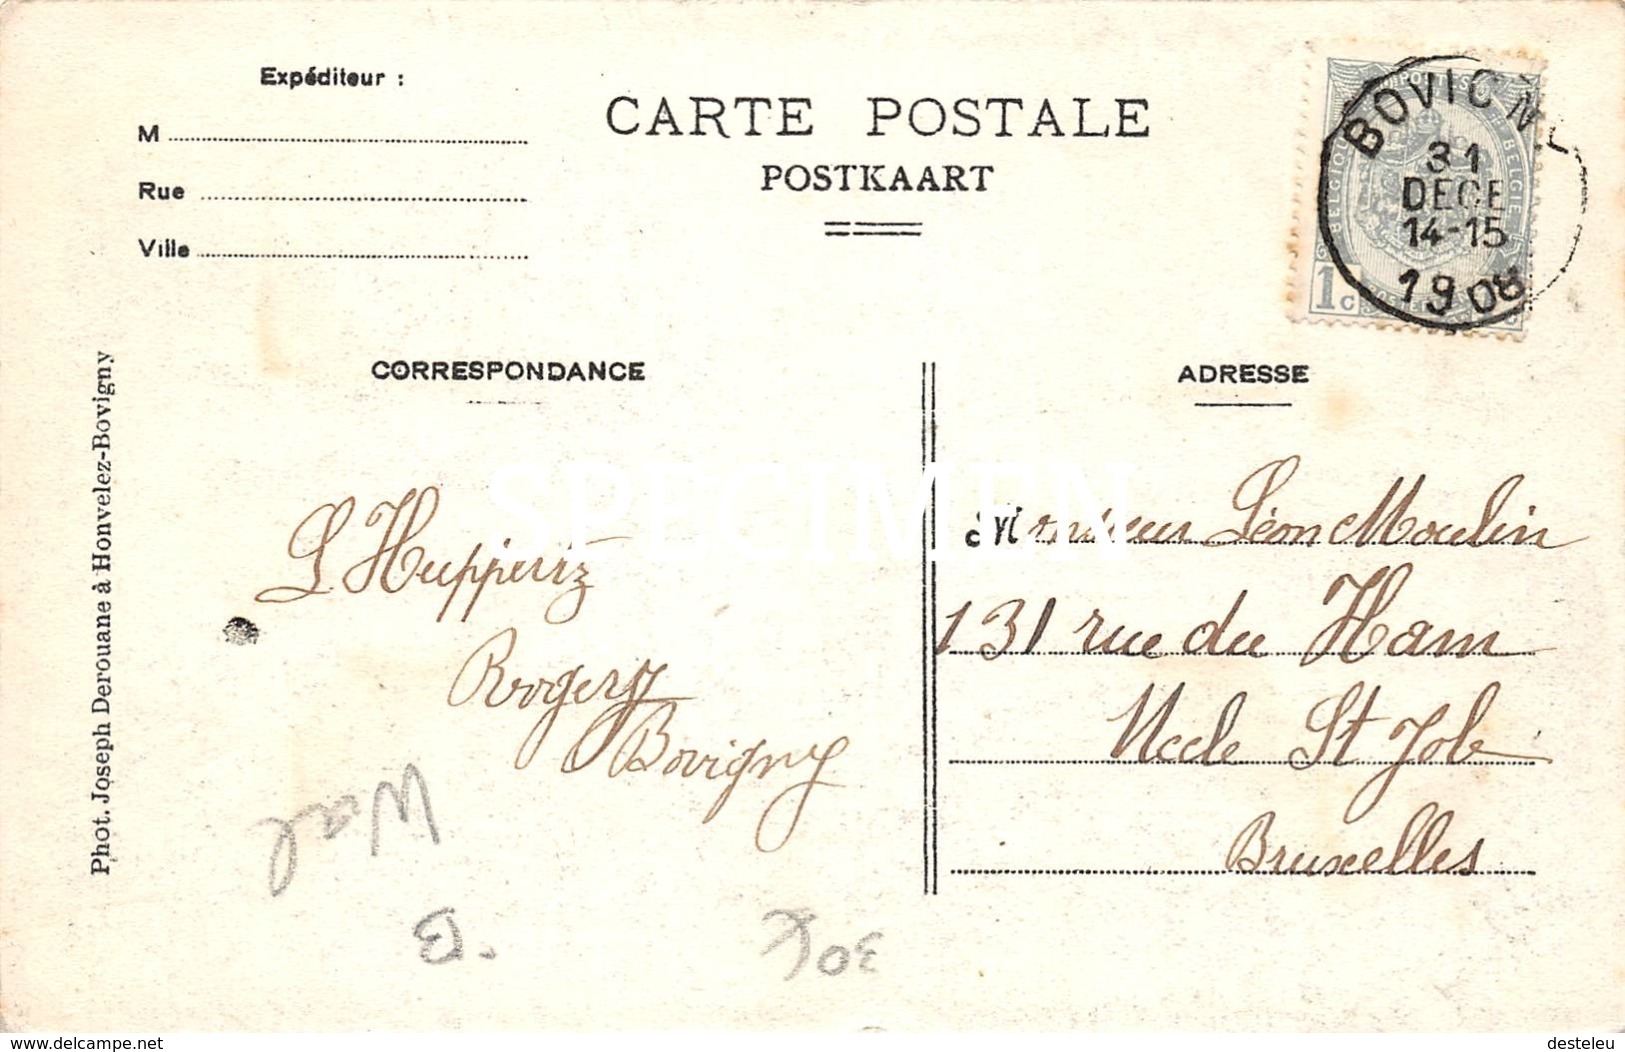 Expéditeur :
M
Rue
Ville
CARTE POSTALE
POSTKAART
BOVIGNY
31
DECE
14-15
1908
POSTES
BELGIQUE
BELGIE
1 C
CORRESPONDANCE
ADRESSE
Phot. Joseph Derouane à Honvelez-Bovigny
SPECIMEN
L Huppertz
Rogery
Bovigny
Monsieur Léon Moulin
131 rue du Ham
Uccle St Job
Bruxelles
Wal
B.
30
www.delcampe.net
desteleu